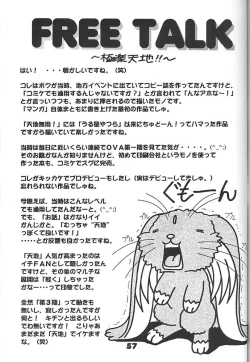 FREE TALK
〜極楽天地!!〜
はい! ・・・懐かしいですね。(笑)
コレはボクが当時、地方イベントに出ていてコピー誌を作ってたんですけど、
「コミケでも通用するんじゃないですか?」とか言われて「んなアホな〜!」
とか言いつつも、あまりに押されるので描いたモノです。
「マンガ」自体まともに書き上げた最初の作品でしゅ。
「天地無用!」には「うる星やつら」以来にちゅどーん!ってハマった作品
ですから描いていて楽しかったですね。
当時は毎日に近いくらい連続でOVA第一期を見てた気が・・・。(^_^;)
そのお陰がなんか知りませんけど、初めて印刷会社というモノを使って
作った本で、コミケでスグに完売。
コレがキッカケでプロデビューもしたし(実はデビューして半年。)
忘れられない作品でしゅね。
今観えば、当時はこんなレベル
でも通用してたんだなーと。(^_^;)
でも、「お話」はがなりイイ
かんじだと。「むっちゃ『天地』
っぽくて良いです!」
・・・とか反響も良かったですね。
「天地」人気が高まったのは
イチFANとして嬉しかったんで
すけど、その後のマルチな
展開は「軽く」しちゃった
かなー・・・って印象でした。
まぁ「第3期」って動きも
無いし、寂しかったんですが
何と! キチンと出るらしい
でわ無いですか! こりゃあ
まだまだ「天地」でイケます
な。(笑)
ぐもーん
57